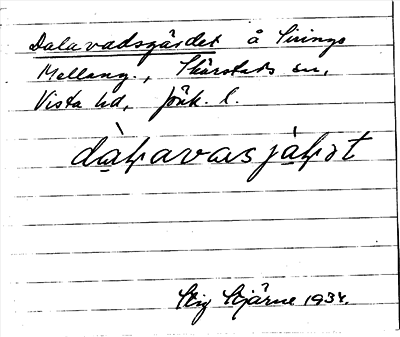 Dalavadsgärdet å Sirings
Mellang., Skärstads sn,
Vista hd, Jönk. l.
dàḥavasjàḥət
Stig Stjärne 1934.